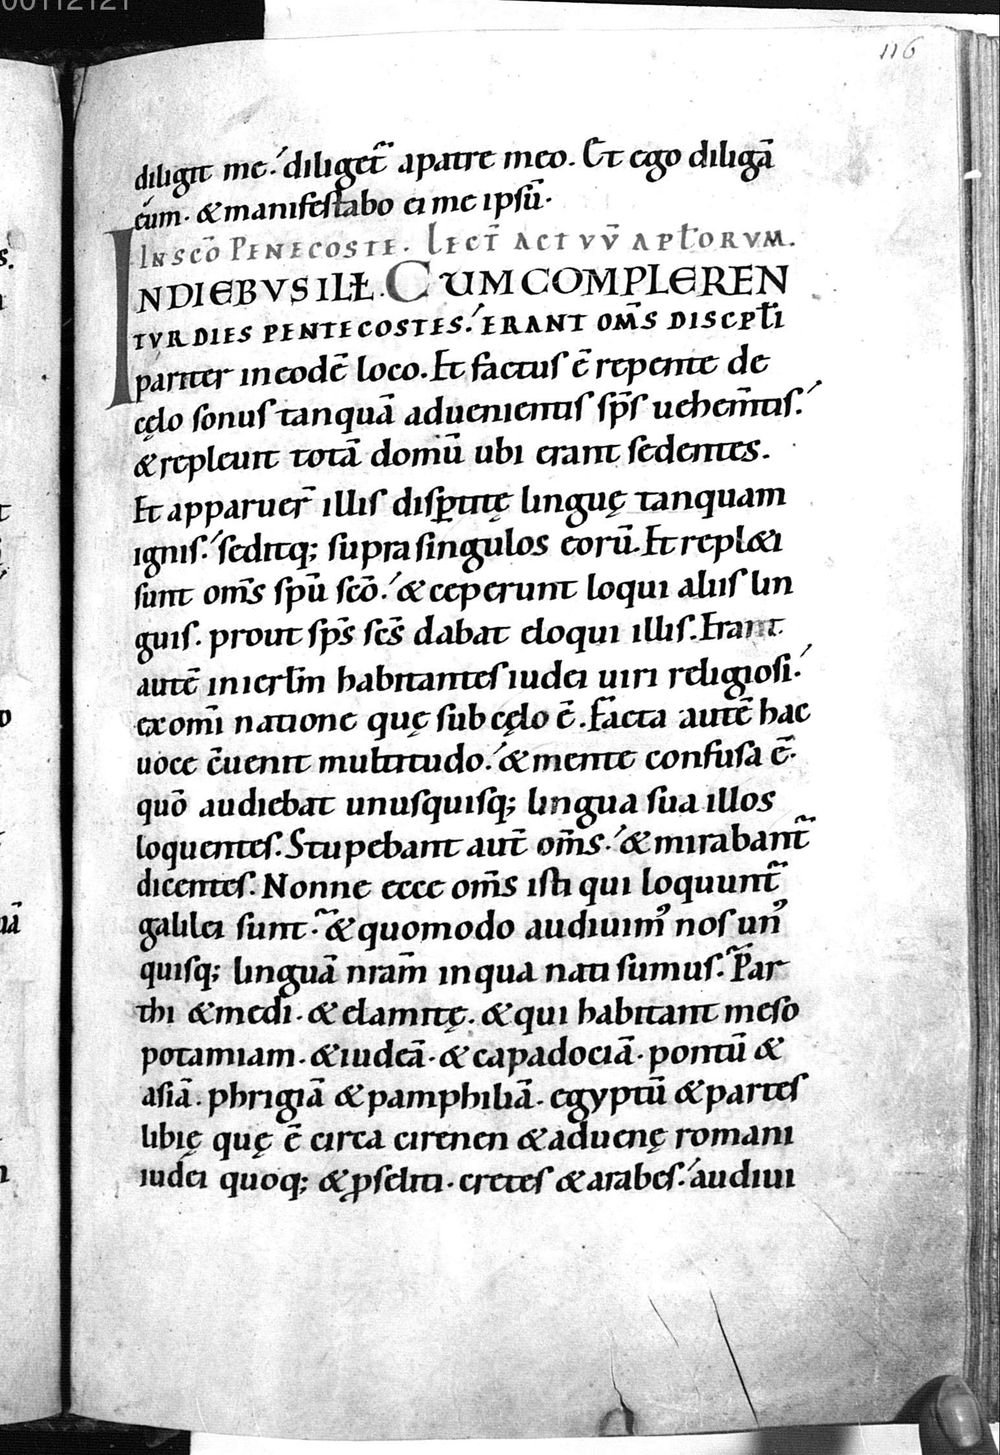 00112121
116
diligit me. diliget᷑ a patre meo. Et ego diligā
eum. & manifestabo ei me ipsū.
IN SCŌ PENECOSTE. LECT̄ ACTVV̄ APŁORVM.
INDIEBVS ILŁ. CUM COMPLEREN
TVR DIES PENTECOSTES. ERANT OM̄S DISCPŁI
pariter in eodē loco. Et factus ē repente de
cęlo sonus tanquā aduenientis sp̄s uehem̄tis.
& repleuit totā domū ubi erant sedentes.
Et apparuer̄ illis disꝑtitę linguę tanquam
ignis. seditq; supra singulos eorū. Et repl&i
sunt om̄s sp̄u scō. & ceperunt loqui aliis lin
guis. prout sp̄s sc̄s dabat eloqui illis. Erant
autē in ierłm habitantes iudei uiri religiosi.
ex omī natione quę sub cęlo ē. Facta autē hac
uoce c̄uenit multitudo. & mente confusa ē.
quō audiebat unusquisq; lingua sua illos
loquentes. Stupebant aut̄ om̄s. & mirabant᷑
dicentes. Nonne ecce om̄s isti qui loquunt᷑
galilei sunt. & quomodo audiuimꝰ nos unꝰ
quisq; linguā nrām in qua nati sumus. Par
thi & medi. & elamitę. & qui habitant meso
potamiam. & iudeā. & capadociā. pontū &
asiā. phrigiā & pamphiliā. egyptū & partes
libię quę ē circa cirenen & aduenę romani
iudei quoq; & ꝓseliti. cretes & arabes. audiui